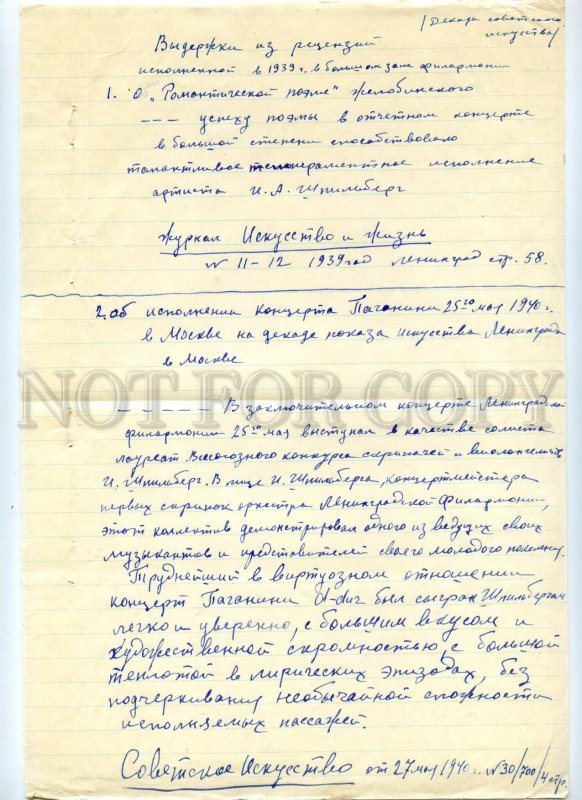 /Декада советского
искусства/
Выдержки из рецензий
исполненной в 1939 г. в большом зале филармонии
1. О "Романтической поэме" Желобинского
--- успеху поэмы в отчетном концерте
в большой степени способствовало
талантливое темпераментное исполнение
артиста И. А. Шпильберг
Журнал Искусство и жизнь
№ 11-12 1939 год Ленинград стр. 58.
2. Об исполнении концерта Паганини 25го мая 1940 г.
в Москве на декаде показа искусства Ленинграда
в Москве
NOT FOR COPY
----- В заключительном концерте Ленинградской
филармонии 25го мая выступал в качестве солиста
лауреат Всесоюзного конкурса скрипачей и виолончелистов
И. Шпильберг. В лице И. Шпильберга, концертмейстера
первых скрипок оркестра Ленинградской Филармонии,
этот коллектив демонстрировал одного из ведущих своих
музыкантов и представителей своего молодого поколения.
Труднейший в виртуозном отношении
концерт Паганини был сыгран Шпильбергом
легко и уверенно, с большим вкусом и
художественной скромностью, с большой
теплотой в лирических эпизодах, без
подчеркивания необычайной сложности
исполняемых пассажей.
Советское Искусство от 27 мая 1940 г. №30/700/4 стр.